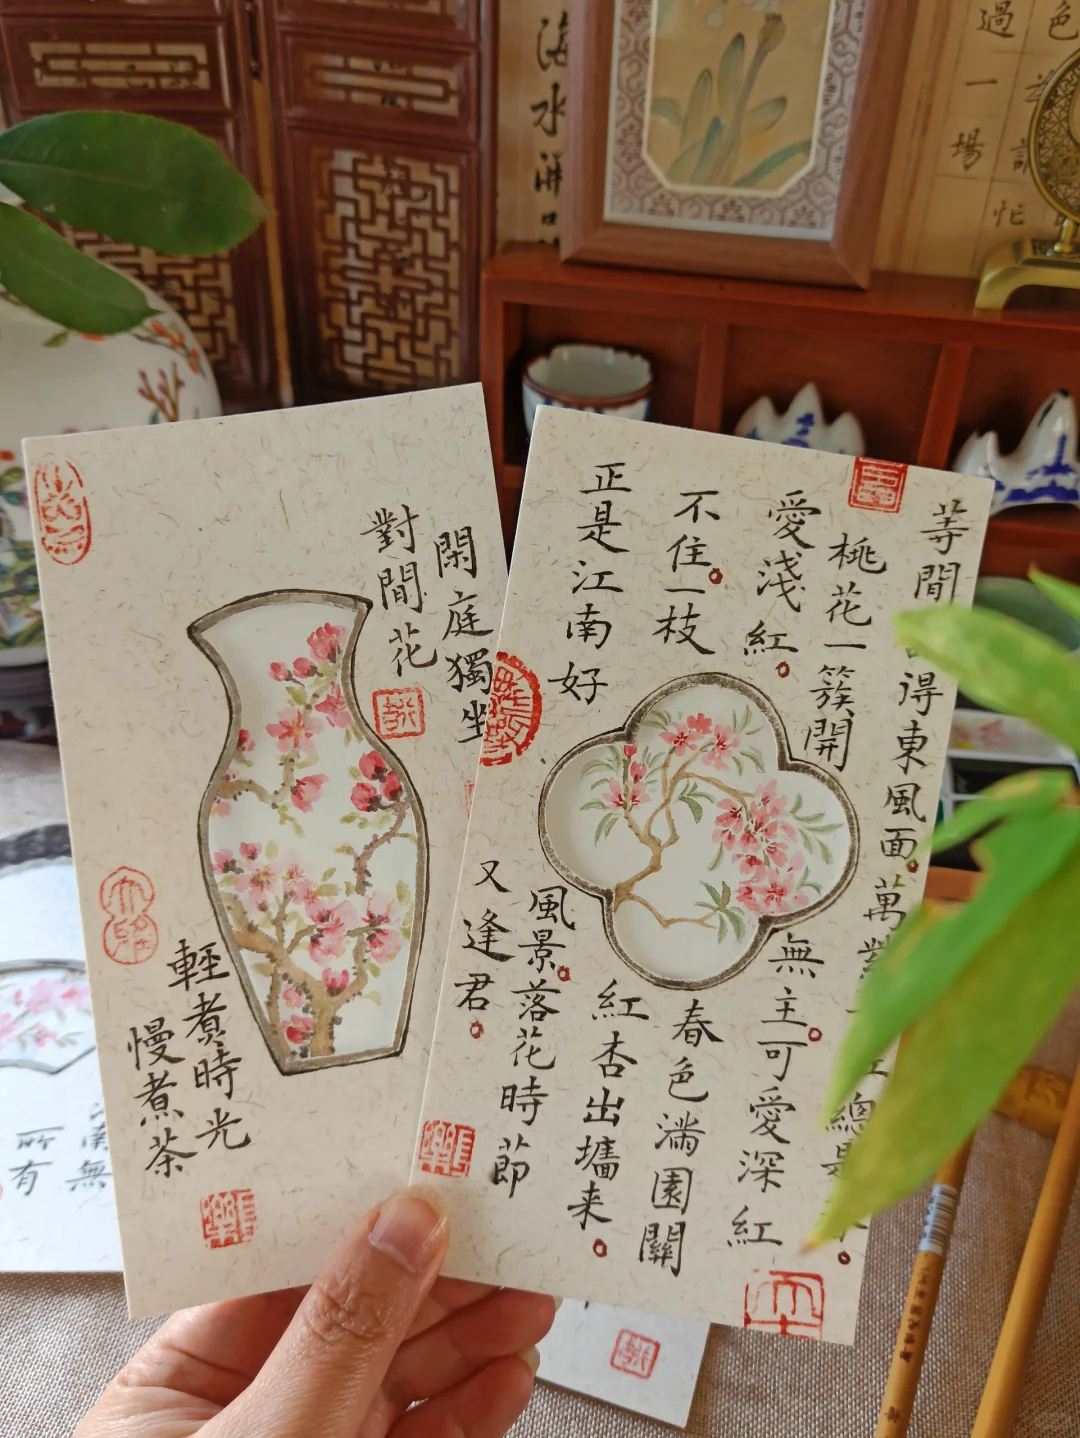 閑庭獨坐
對間花
輕煮時光
慢煮茶
等間 得東風面。萬 總是
桃花一簇開無主。可愛深紅
愛淺紅。
春色滿園關
不住。一枝紅杏出墻来。
正是江南好風景。落花時節
又逢君。
海水
過一場忙
色
南無
所有